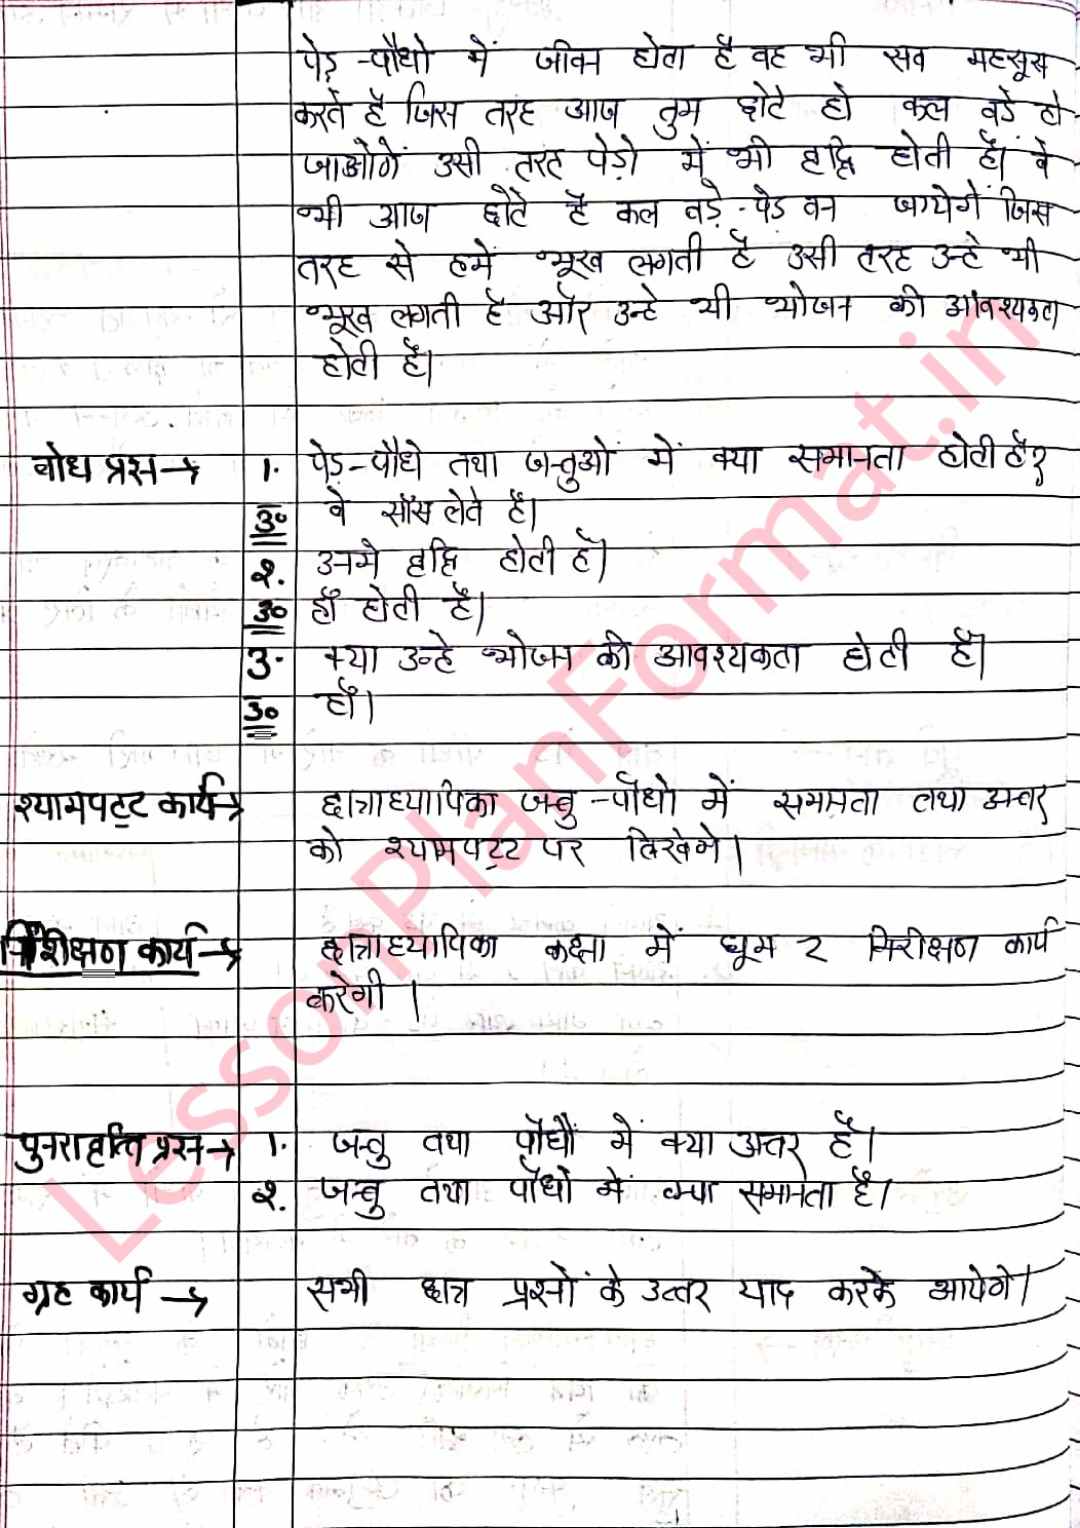 पेड़-पौधो में जीवन होता है वह भी सब महसूस
करते है जिस तरह आज तुम छोटे हो कल बडे हो
जाओगें उसी तरह पेड़ो में भी वृद्धि होती है। वे
भी आज छोटे है कल बड़े-पेड बन जायेगें जिस
तरह से हमे भूख लगती है उसी तरह उन्हे भी
भूख लगती है और उन्हे भी भोजन की आवश्यकता
होती है।
बोध प्रश्न→ 1. पेड़-पौधे तथा जन्तुओं में क्या समानता होती है?
उ० वे साँस लेते है।
२. उनमे वृद्धि होती है।
उ० हाँ होती है।
3. क्या उन्हे भोजन की आवश्यकता होती है।
उ० हाँ।
श्यामपट्ट कार्य→ छात्राध्यापिका जन्तु-पौधो में समानता तथा अन्तर
को श्यामपट्ट पर लिखेगे।
निरीक्षण कार्य→ छात्राध्यापिका कक्षा में घूम २ निरीक्षण कार्य
करेगी।
पुनरावृत्ति प्रश्न→ 1. जन्तु तथा पौधों में क्या अन्तर है।
२. जन्तु तथा पौधो में क्या समानता है।
ग्रह कार्य → सभी छात्र प्रश्नों के उत्तर याद करके आयेगे।
LessonPlanFormat.in